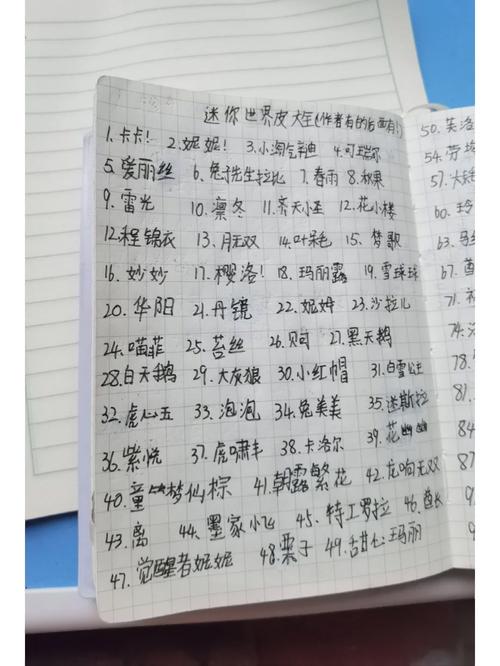 迷你世界皮大全(作者有的后面有!)
1.卡卡! 2.妮妮! 3.小淘气辛迪 4.可瑞尔
5.爱丽丝 6.兔子先生拉比 7.春雨 8.秋果
9.雷光 10.凛冬 11.齐天小圣 12.花小楼
12.程锦衣 13.月无双 14.叶呆毛 15.梦歌
16.妙妙 17.樱洛! 18.玛丽露 19.雪球球
20.华阳 21.丹镜 22.妮姆 23.沙拉儿
24.喵菲 25.苔丝 26.贝可 27.黑天鹅
28.白天鹅 29.大灰狼 30.小红帽 31.白雪公主
32.虎心五 33.泡泡 34.兔美美 35.迷斯拉
36.紫悦 37.虎啸丰 38.卡洛尔 39.花幽幽
40.童梦仙棕 41.朝露繁花 42.龙吟无双
43.离 44.墨家小飞 45.特工罗拉 46.酋长
47.觉醒者妮妮 48.栗子 49.甜心玛丽
50.芙洛
54.劳埃
57.大
60.玲
63.马
67.酋
71.
74.
78.
81.
84
87